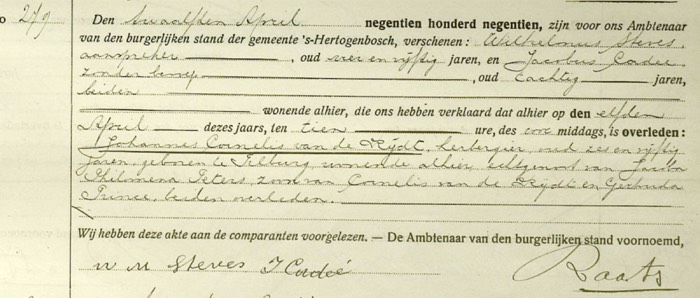 o 279
Den twaalfden April negentien honderd negentien, zijn voor ons Ambtenaar
van den burgerlijken stand der gemeente 's-Hertogenbosch, verschenen: Wilhelmus Steves
aanspreker, oud vier en vijftig jaren, en Jacobus Cadee
zonder beroep, oud tachtig jaren,
beiden
wonende alhier, die ons hebben verklaard dat alhier op den elfden
April dezes jaars, ten tien ure, des voor middags, is overleden:
Johannes Cornelis van de Heijdt, herbergier, oud zes en vijftig
jaren, geboren te Tilburg, wonende alhier, echtgenoot van Jacoba
Philomena Peters, zoon van Cornelis van de Heijdt en Gertruda
Prince, beiden overleden.
Wij hebben deze akte aan de comparanten voorgelezen. — De Ambtenaar van den burgerlijken stand voornoemd,
W M Steves J Cadeé Raats